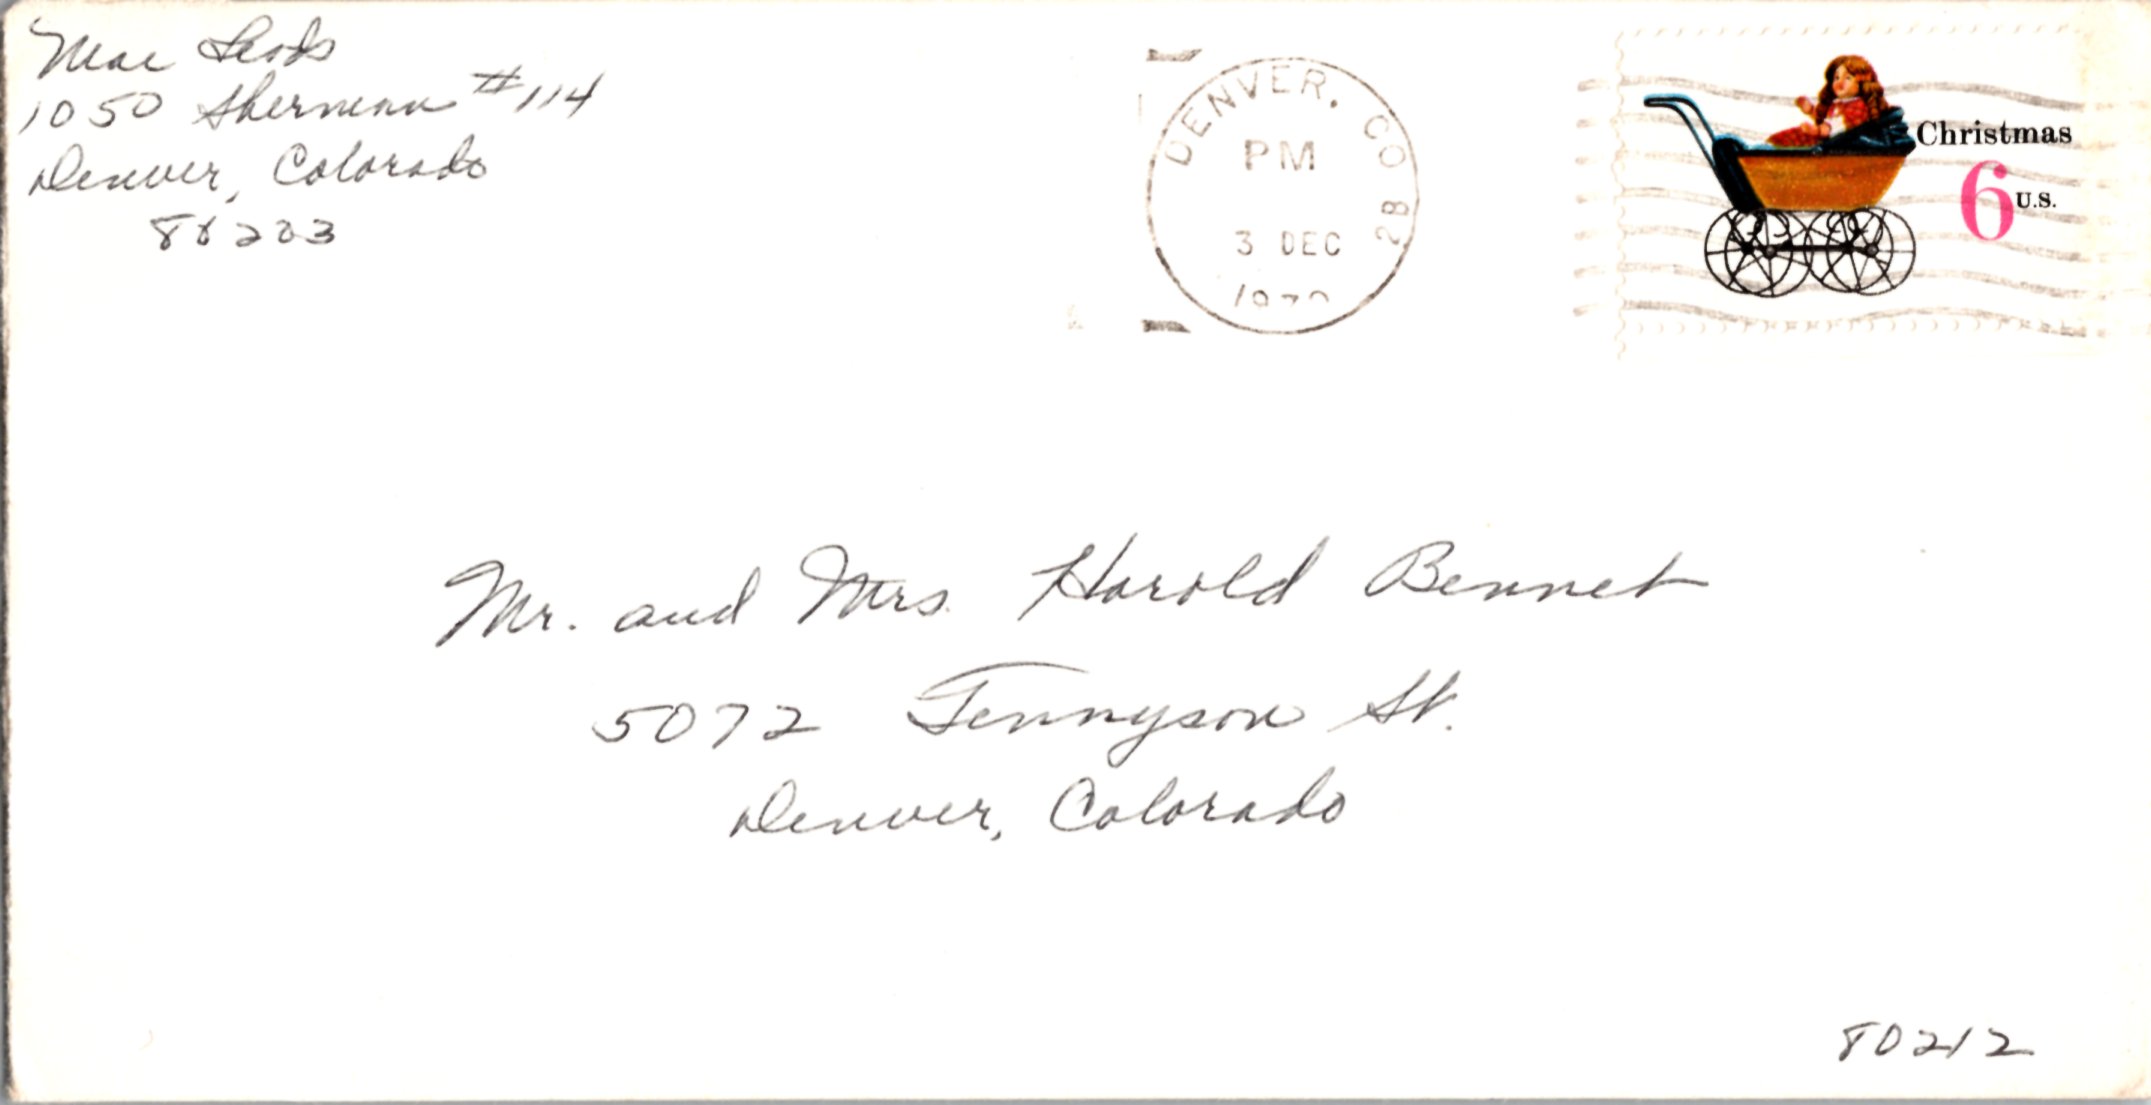 Mae
1050 Sherman #114
Denver, Colorado
80203
DENVER, CO
PM
3 DEC
2B
Christmas
6 U.S.
Mr. and Mrs. Harold Bennet
5072 Tennyson St.
Denver, Colorado
80212